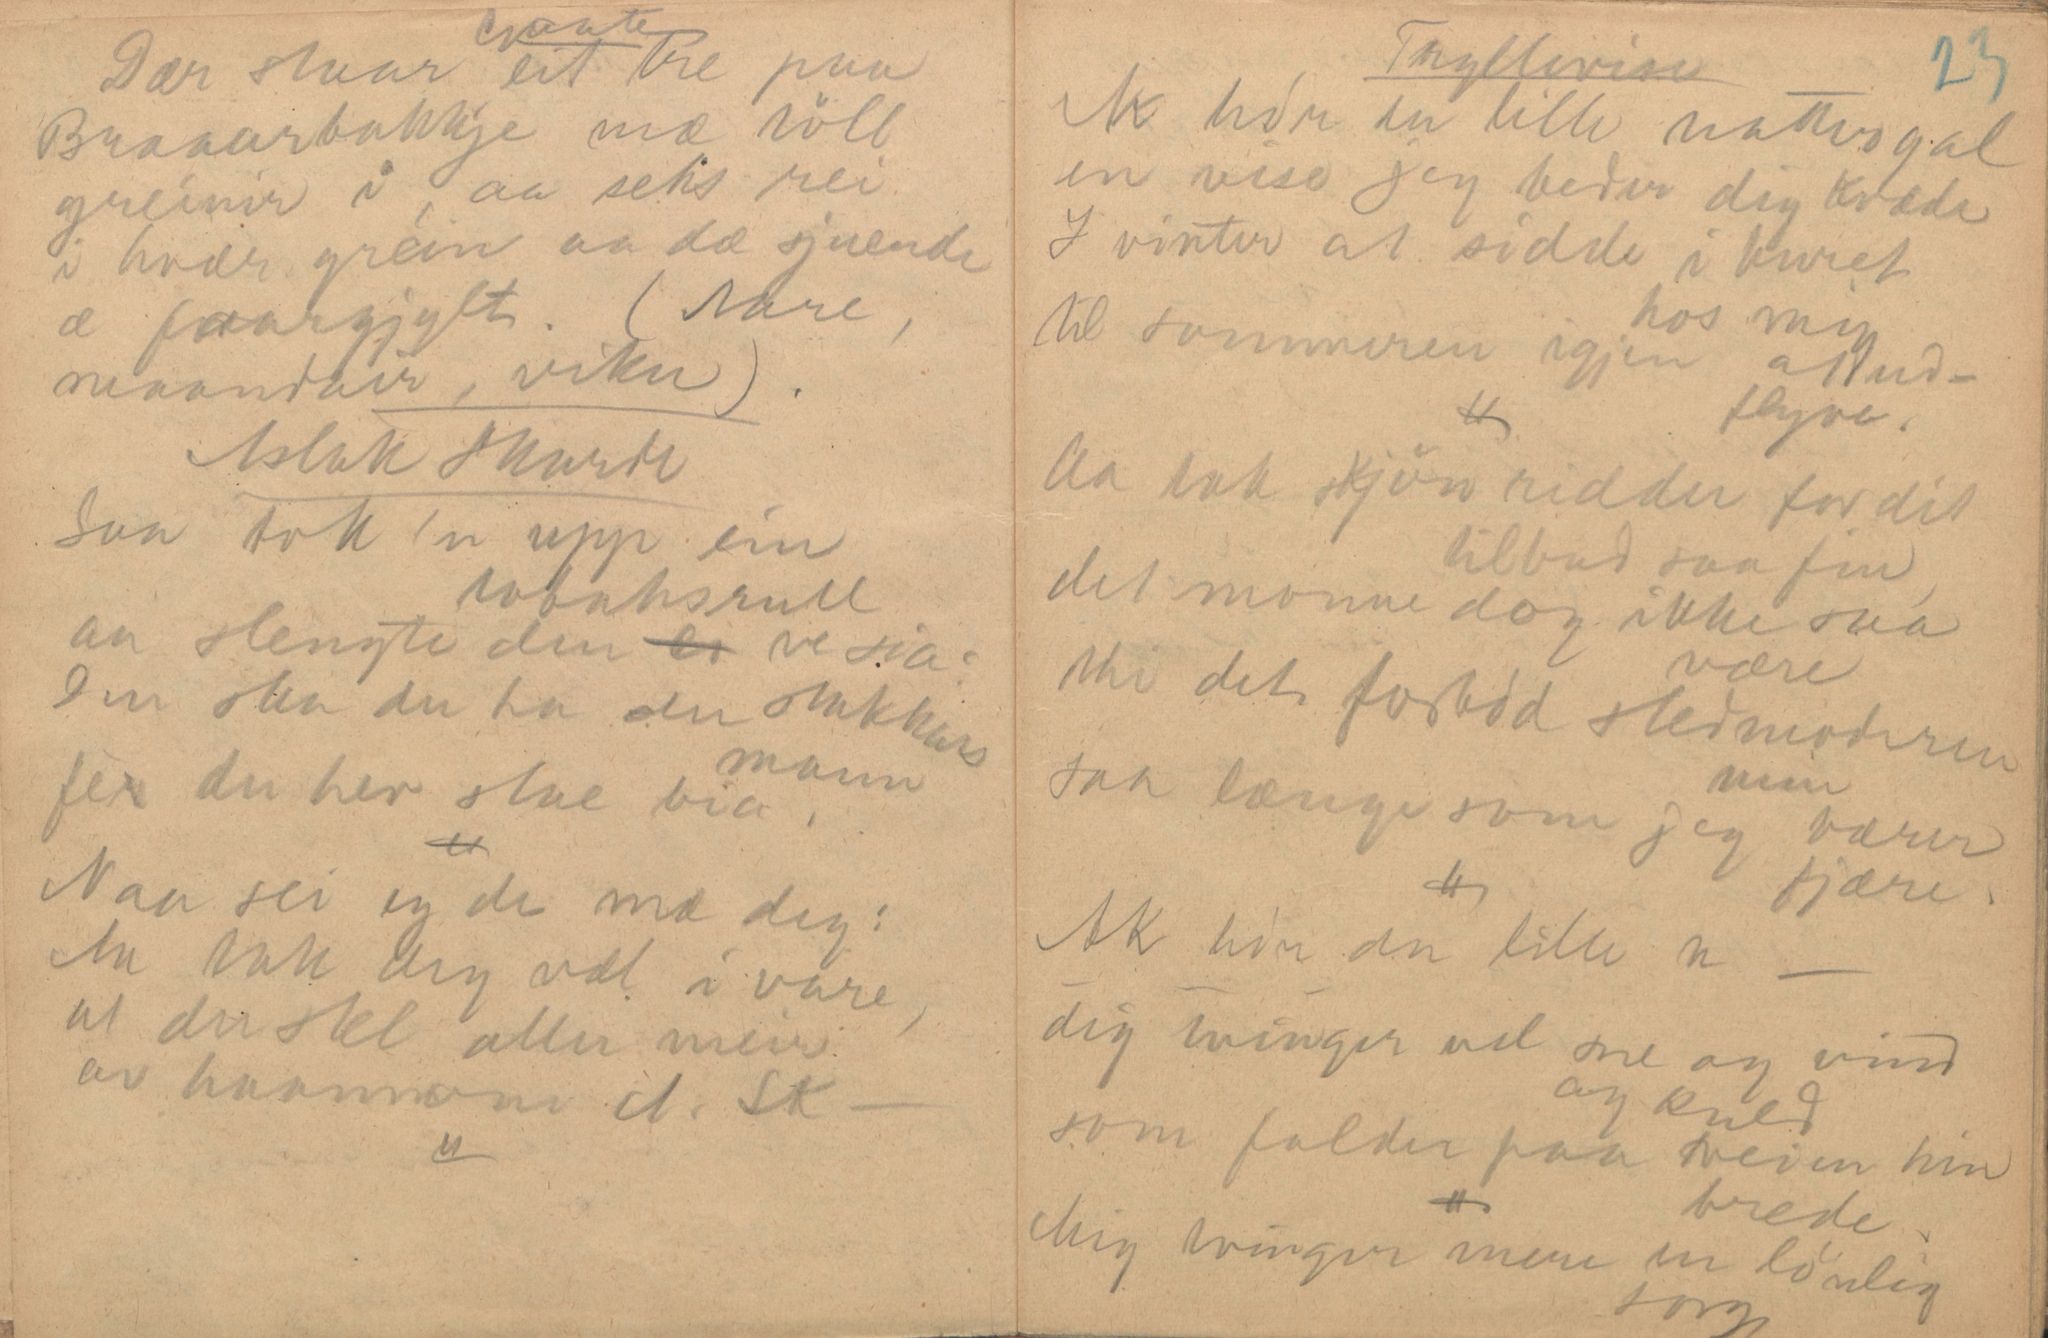 Gaate
Dær staar eit tre paa
Braaarbakkje mæ töll
greinir i, aa seks rei
i hvær grein aa dæ sjuende
æ faargjylt. (Aare,
maandair, viku).
Aslak Skarde
Saa tok 'n upp ein
tobaksrull
aa slengte den ve sia:
Den ska du ha du stakkars
mann
fer du her stae bia.
"
Naa sei eg de mæ deg:
Aa tak deg væl i vare,
at du stel aller meir
av haannom A. Sk —
"
23
Tryllevise
Ak hør du lille nattergal
en vise jeg beder dig kvæde
I vinter at sidde i buret
hos mig
til sommeren igjen at ud-
flyve.
"
Aa tak skjön ridder for dit
tilbud saa fin,
det monne dog ikke saa
være
thi det forbød stedmoderen
min
saa længe som jeg værer
kjære.
"
Ak hør du lille n —
dig tvinger vel sne og vind
og kuld
som falder paa veien hin
brede.
"
Mig tvinger mere en lönlig
sorg